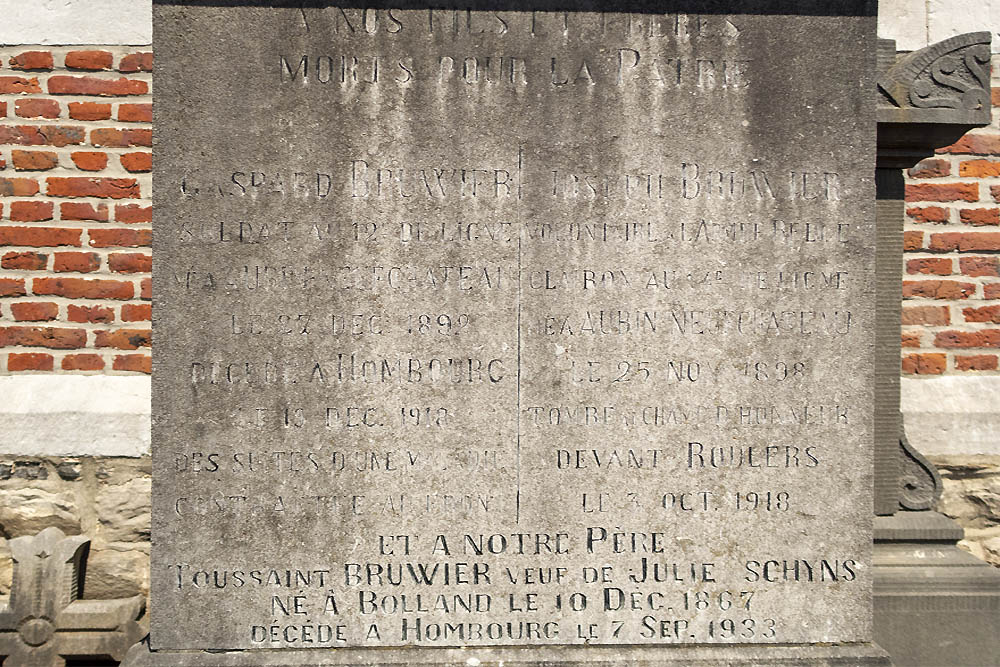 A NOS FILS ET FRÈRES
MORTS POUR LA PATRIE
GASPARD BRUWIER
SOLDAT AU 12E DE LIGNE
NÉ A AUBIN NEUFCHATEAU
LE 27 DEC. 1892
DÉCÉDÉ A HOMBOURG
LE DEC. 1918
DES SUITES D'UNE MALADIE
CONTRACTÉE AU FRONT
JOSEPH BRUWIER
VOLONTAIRE A L'ARMÉE BELGE
CLAIRON AU DE LIGNE
NÉ A AUBIN NEUFCHATEAU
LE 25 NOV. 1898
TOMBÉ AU CHAMP D'HONNEUR
DEVANT ROULERS
LE 3 OCT. 1918
ET A NOTRE PÈRE
TOUSSAINT BRUWIER VEUF DE JULIE SCHYNS
NÉ À BOLLAND LE 10 DÉC. 1867
DÉCÉDÉ A HOMBOURG LE 7 SEP. 1933